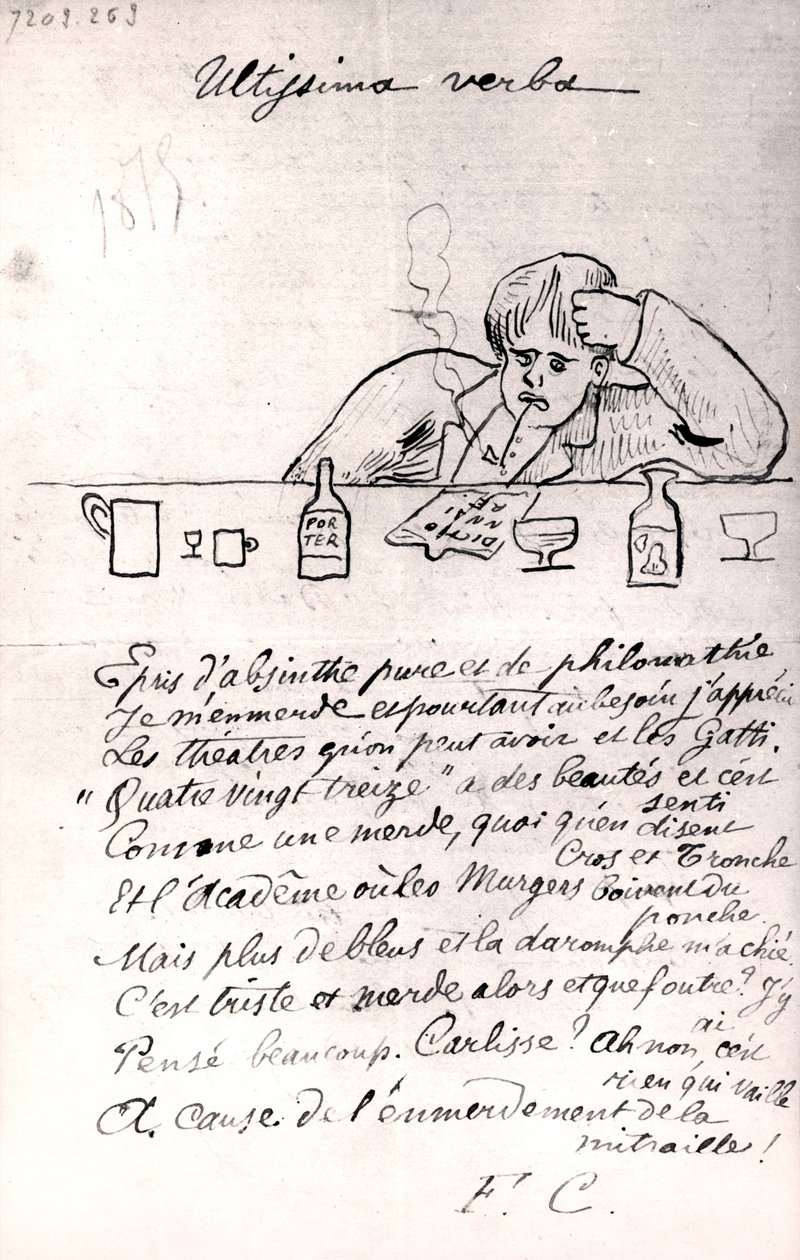 7209.269
Ultissima verba
1875
POR
TER
DICTIO
NNAI
RE.
Epris d'absinthe pure et de philomathie
Je m'enmerde et pourtant au besoin j'apprécie
Les théâtres qu'on peut avoir et les Gatti.
"Quatre vingt treize" a des beautés et c'est
senti
Comme une merde, quoi qu'en disent
Cros et Tronche
Et l'Acadême où les Murgers boivent du
ponche.
Mais plus de bleus et la daromphe m'a chié.
C'est triste et merde alors et que foutre? J'y
ai
Pensé beaucoup. Carlisse? Ah non, c'est
rien qui vaille
A cause de l'enmerdement de la
mitraille!
F. C.